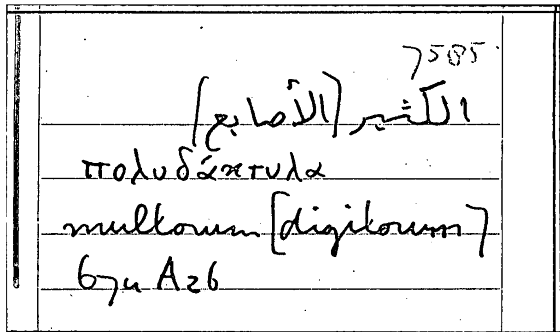 7585
الكثير (الأصابع)
πολυδάκτυλα
multorum [digitorum]
67u A26